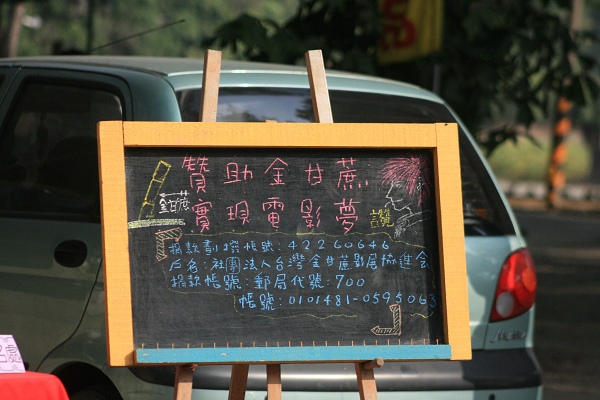 贊助金甘蔗
金甘蔗
實現電影夢
捐款劃撥帳號:42260646
戶名:社團法人台灣金甘蔗影展協進會
捐款帳號:郵局代號:700
帳號:0101481-0595063